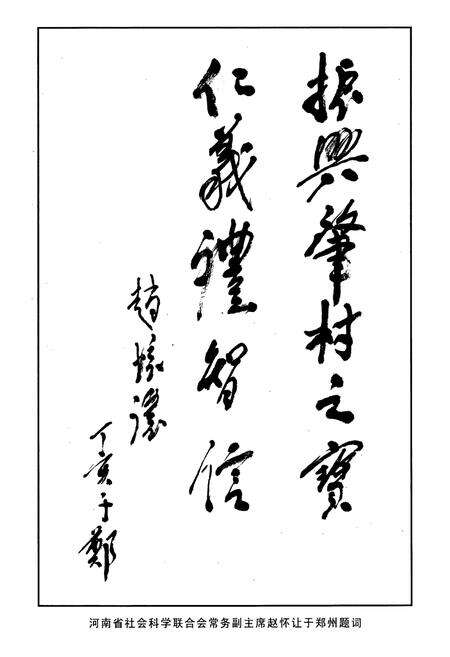 振興肇村之寶
仁義禮智信
趙懷讓
丁亥于鄭
河南省社会科学联合会常务副主席赵怀让于郑州题词